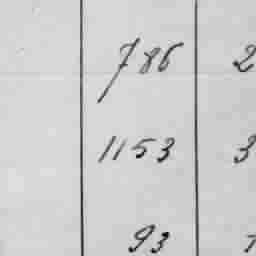 786 2
1153 3
93